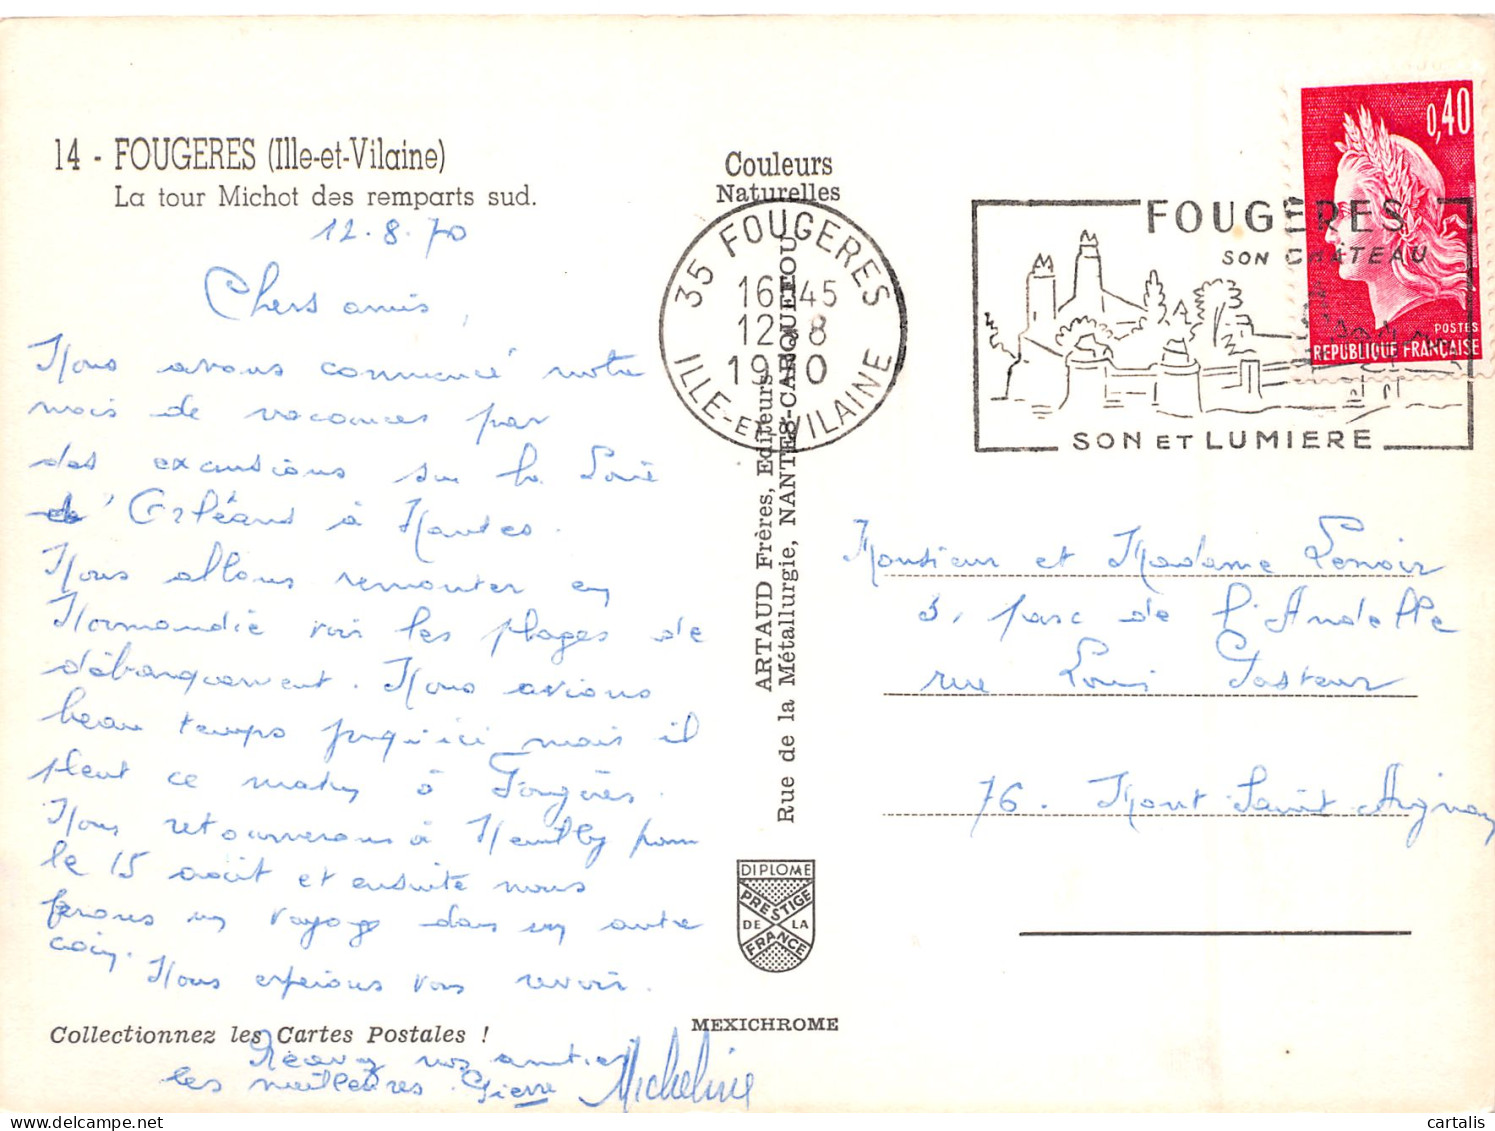 14 - FOUGERES (Ille-et-Vilaine)
La tour Michot des remparts sud.
12.8.70
Chers amis,
Nous avons commencé notre
mois de vacances par
des excursions sur la Loire
d'Orléans à Nantes.
Nous allons remonter en
Normandie voir les plages de
débarquement. Nous avions
beau temps jusqu'ici mais il
pleut ce matin à Fougères.
Nous retournerons à Neuilly pour
le 15 août et ensuite nous
ferons un voyage dans un autre
coin.
Nous espérions vous revoir.
Collectionnez les Cartes Postales !
Recevez nos amitiés
les meilleures. Pierre Micheline
Couleurs
Naturelles
35 FOUGERES
16 45
12 - 8
1970
ILLE-ET-VILAINE
ARTAUD Frères, Editeurs
Rue de la Métallurgie, NANTES-CARQUEFOU
DIPLOME
PRESTIGE
DE LA
FRANCE
MEXICHROME
FOUGERES
SON CHATEAU
SON ET LUMIERE
0,40
POSTES
REPUBLIQUE FRANCAISE
Monsieur et Madame Lenoir
3, parc de l'Andelle
rue Louis Pasteur
76. Mont Saint Aignan
cartalis